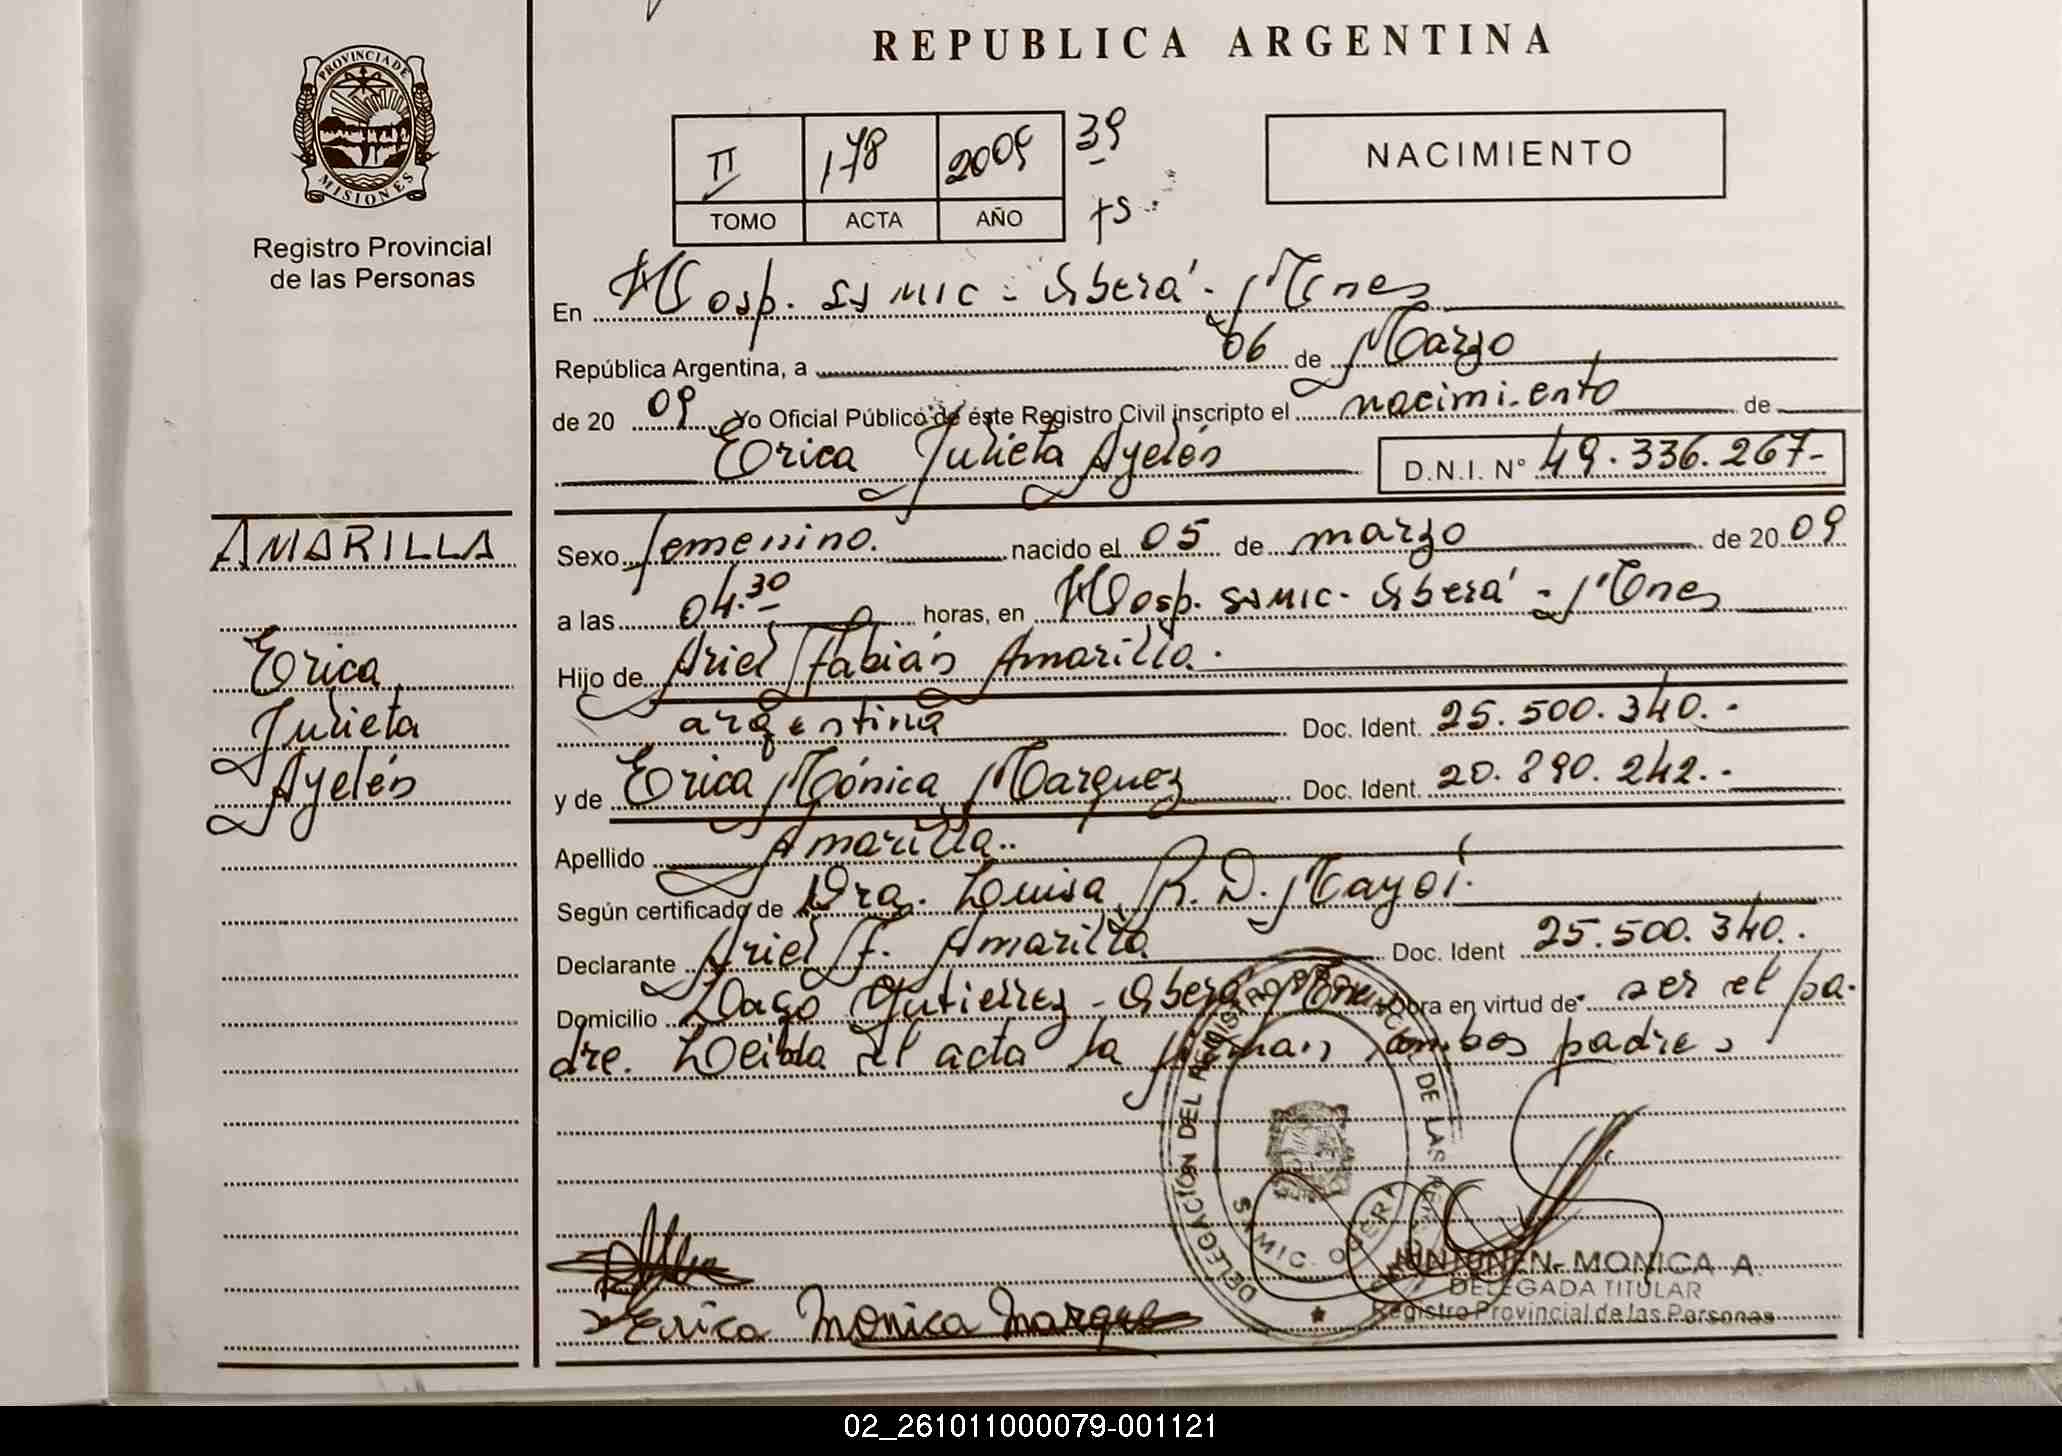 REPUBLICA ARGENTINA
PROVINCIA DE MISIONES
Registro Provincial
de las Personas
II 178 2009 39
TOMO ACTA AÑO
NACIMIENTO
En Hosp. SAMIC - Oberá - Mnes
República Argentina, a 06 de Marzo
de 2009 Yo Oficial Público de éste Registro Civil inscripto el nacimiento de
Erica Julieta Ayelén D.N.I. N° 49.336.267-
AMARILLA
Erica
Julieta
Ayelén
Sexo femenino. nacido el 05 de marzo de 2009
a las 04.30 horas, en Hosp. SAMIC - Oberá - Mnes
Hijo de Ariel Fabián Amarilla.
argentina Doc. Ident. 25.500.340.-
y de Erica Mónica Marquez Doc. Ident. 20.890.242.-
Apellido Amarilla..
Según certificado de Dra. Luisa R. D. Mayol.
Declarante Ariel F. Amarilla Doc. Ident 25.500.340..
Domicilio Dago Gutierrez - Oberá Mnes Obra en virtud de ser el pa-
dre. Leida el acta la firman ambos padres
DELEGACIÓN DEL REGISTRO PROVINCIAL DE LAS PERSONAS
SAMIC. OBERÁ
Erica Monica Marquez
MONICA A.
DELEGADA TITULAR
Registro Provincial de las Personas
02_261011000079-001121